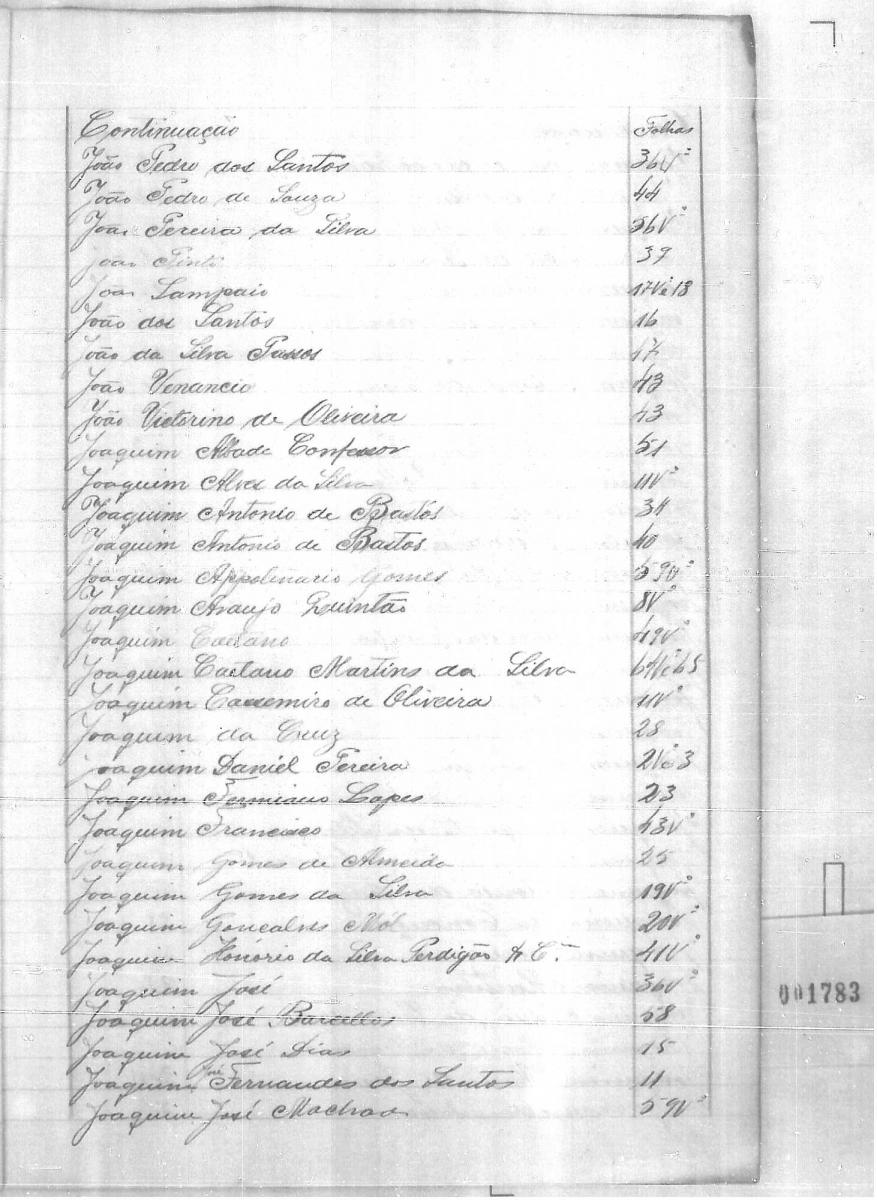 Continuação Folhas
João Pedro dos Santos 36Vº
João Pedro de Souza 44
João Pereira da Silva 56Vº
João Pinto 39
João Sampaio 17Vº e 18
João dos Santos 16
João da Silva Passos 47
João Venancio 43
João Victorino de Oliveira 43
Joaquim Abbade Confessor 51
Joaquim Alves da Silva 11Vº
Joaquim Antonio de Bastos 34
Joaquim Antonio de Bastos 40
Joaquim Appolinario Gomes 59Vº
Joaquim Araujo Quintão 8Vº
Joaquim Caetano 49Vº
Joaquim Caetano Martins da Silva 64Vº e 65
Joaquim Cassemiro de Oliveira 11Vº
Joaquim da Cruz 28
Joaquim Daniel Pereira 2Vº e 3
Joaquim Fermiano Lopes 23
Joaquim Francisco 43Vº
Joaquim Gomes de Almeida 25
Joaquim Gomes da Silva 19Vº
Joaquim Goncalves Mól 20Vº
Joaquim Honório da Silva Perdigão & Cª. 41Vº
Joaquim José 36Vº
001783
Joaquim José Barcellos 58
Joaquim José Dias 15
Joaquim Fernandes dos Santos 11
Joaquim José Machado 59Vº